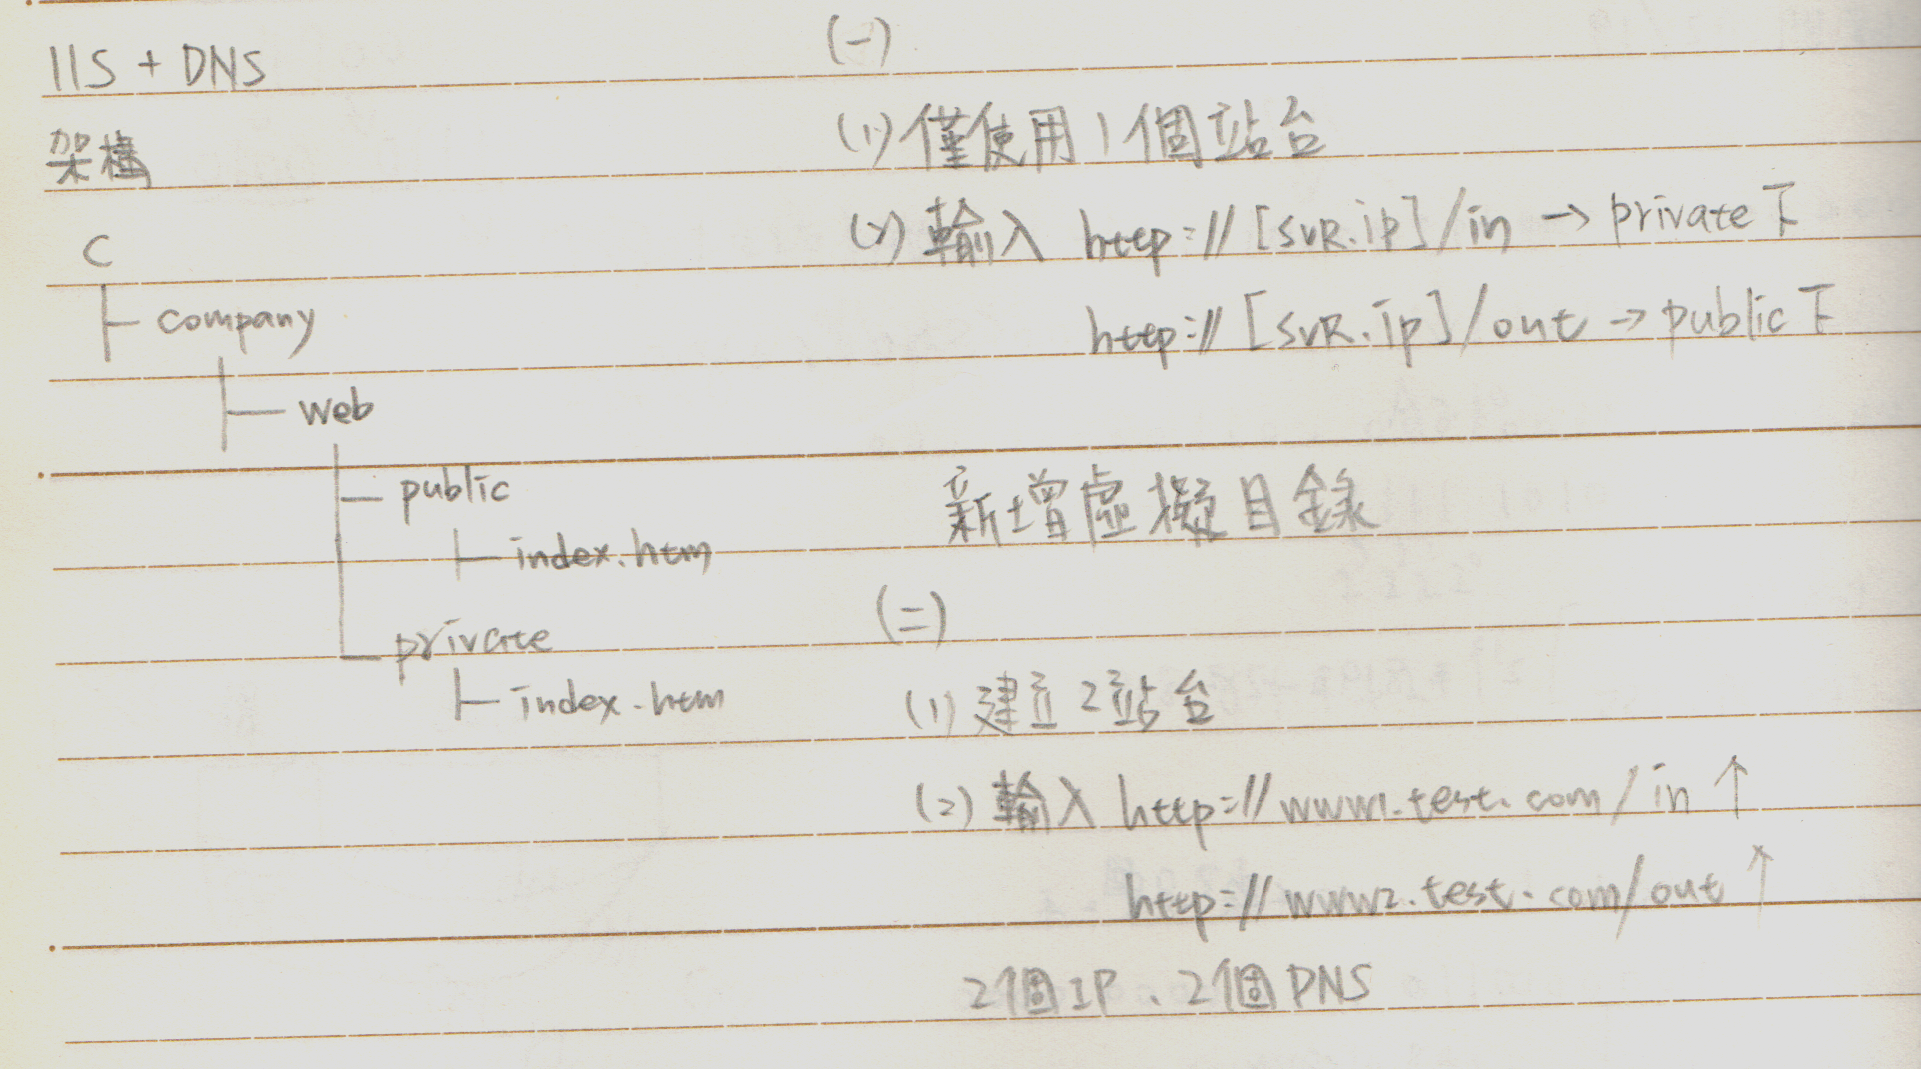 IIS + DNS
架構
C
├ company
├─ web
├─ public
├─ index.htm
├─ private
├─ index.htm
(一)
(1) 僅使用1個站台
(2) 輸入 http://[SVR.ip]/in → private下
http://[SVR.ip]/out → public下
新增虛擬目錄
(二)
(1) 建立2站台
(2) 輸入 http://www1.test.com/in ↑
http://www2.test.com/out ↑
2個IP、2個DNS